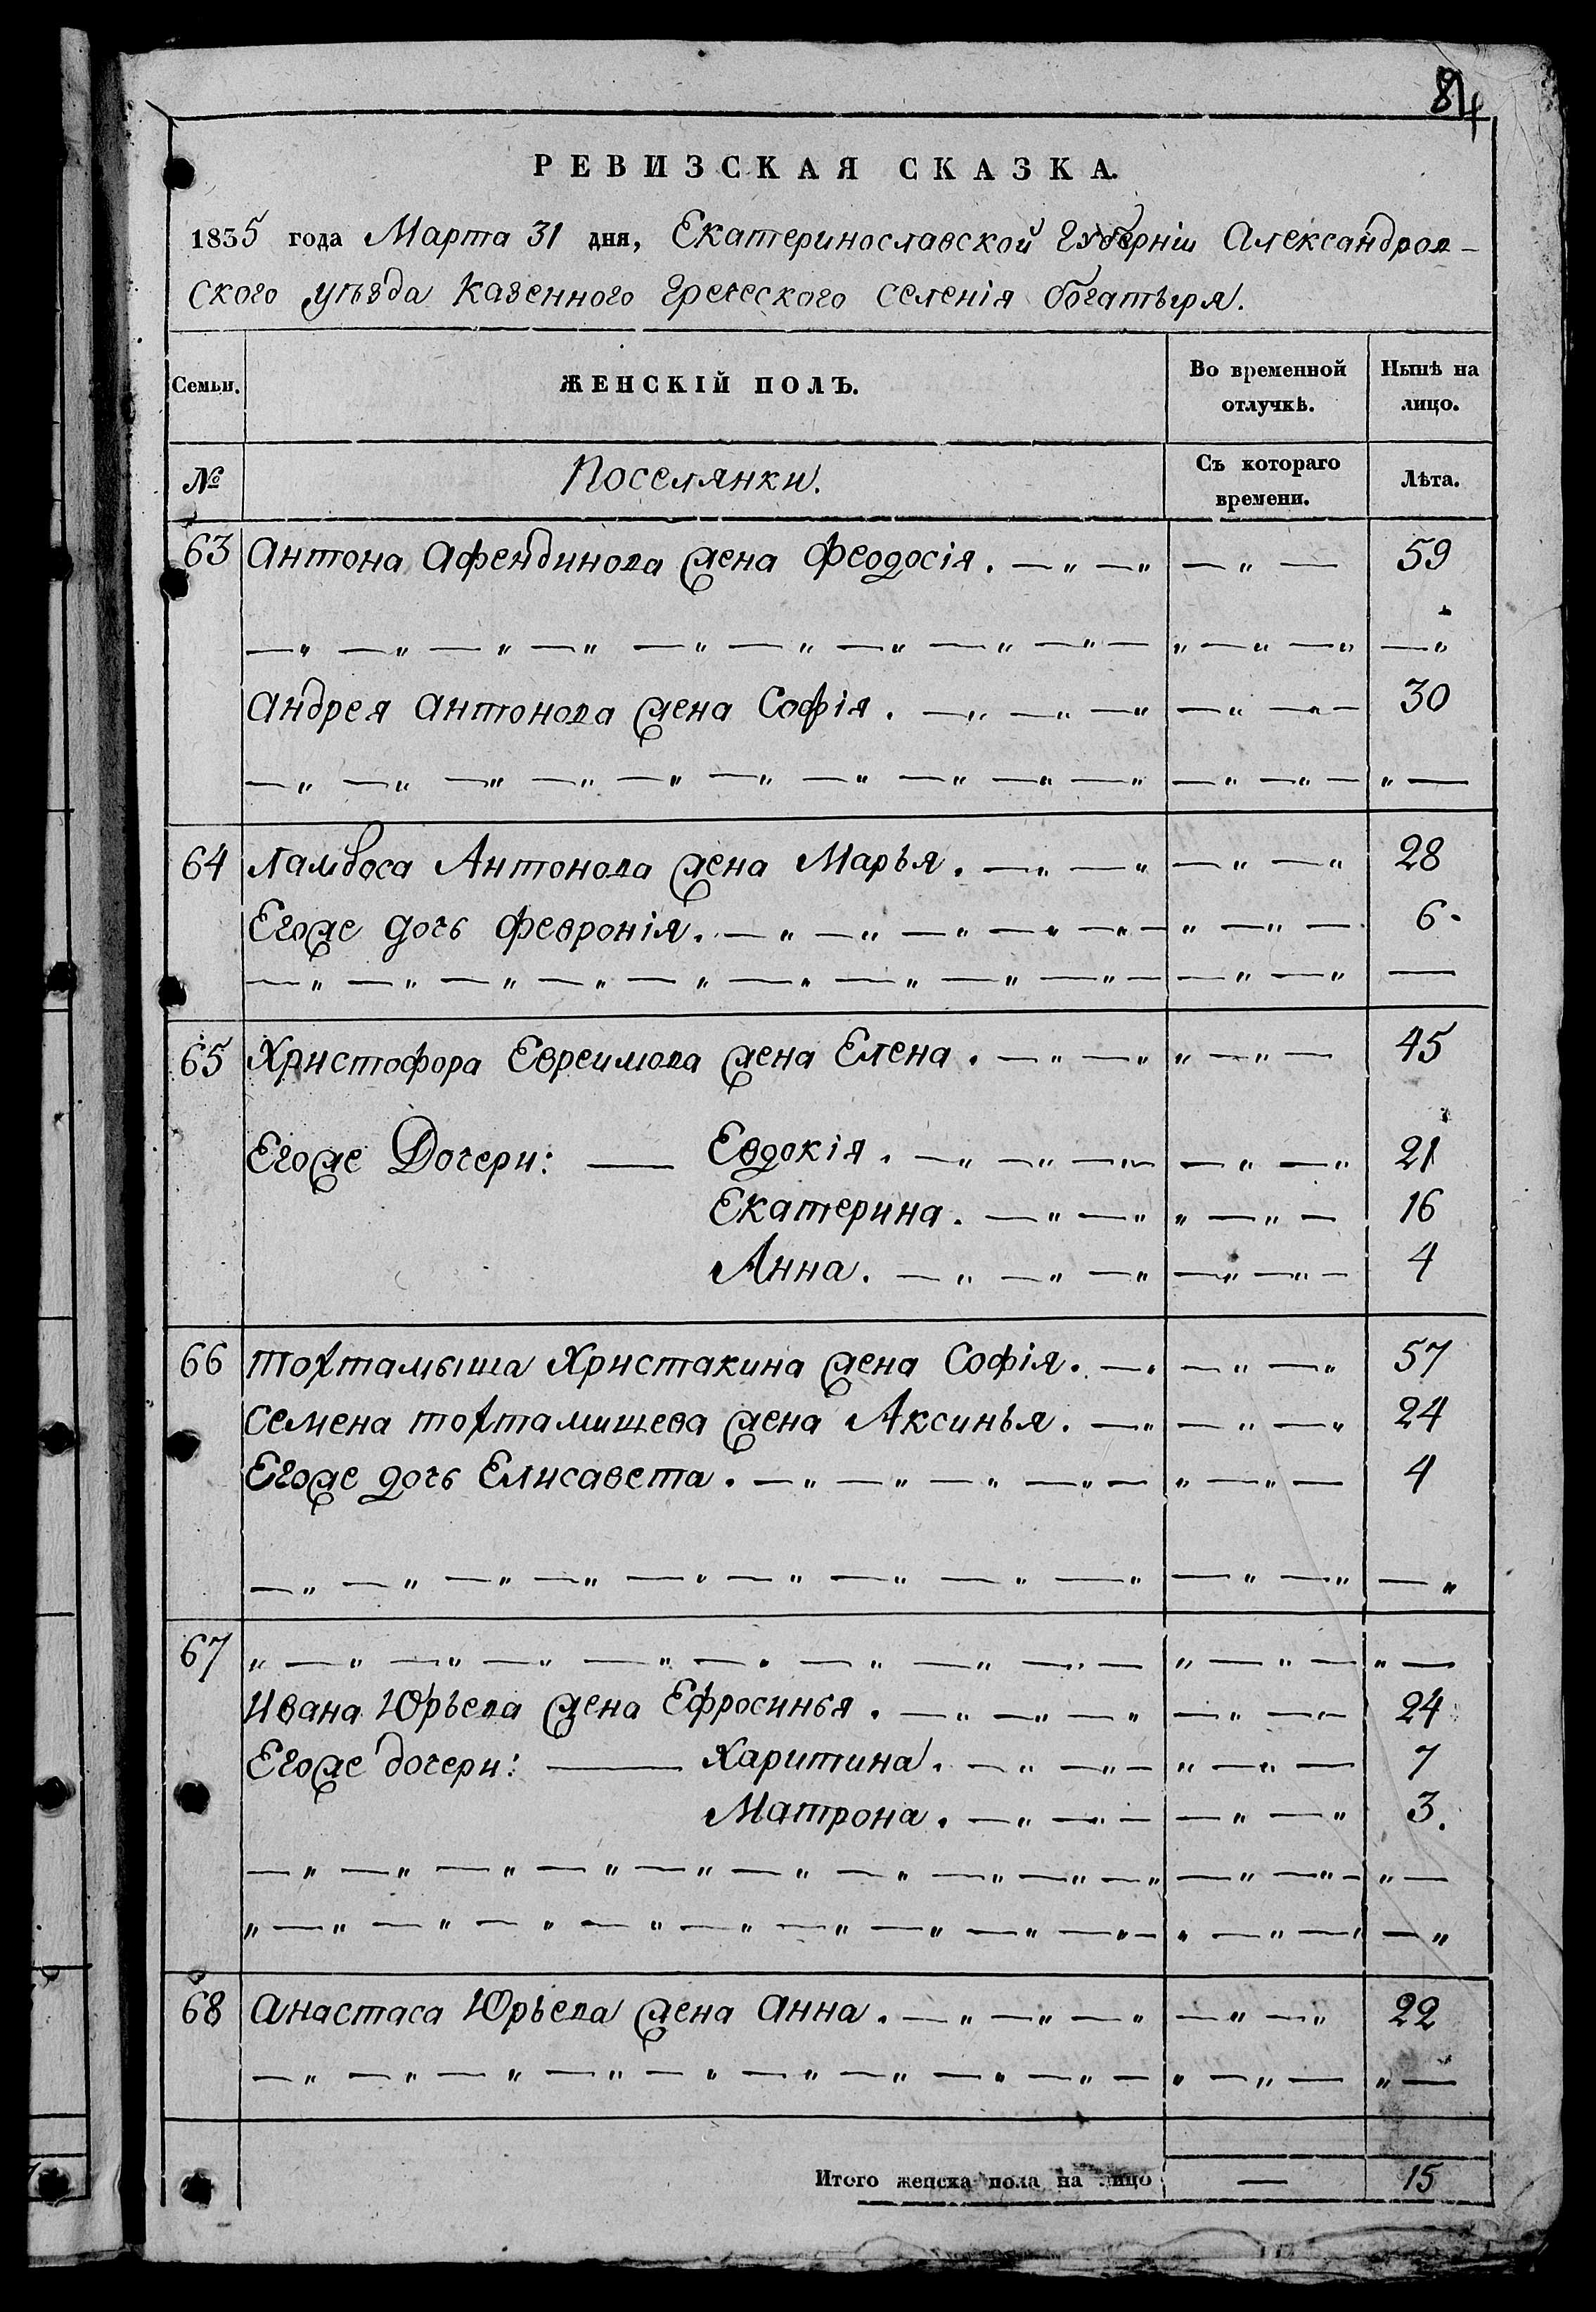 84
РЕВИЗСКАЯ СКАЗКА.
1835 года Марта 31 дня, Екатеринославской Губерніи Александров-
ского уѣзда казенного греческого селенія богатыря.
Семьи. ЖЕНСКІЙ ПОЛЪ. Во временной отлучкѣ. Нынѣ на лицо.
№ Поселянки. Съ котораго времени. Лѣта.
63 Антона Афендинова жена Феодосія. 59
Андрея Антонова жена Софія. 30
64 Ламбоса Антонова жена Марья. 28
Егоже дочь Февронія. 6
65 Христофора Евреимова жена Елена. 45
Егоже Дочери: Евдокія. 21
Екатерина. 16
Анна. 4
66 Тохтамыша Христакина жена Софія. 57
Семена тохтамишева жена Аксинья. 24
Егоже дочь Елисавета. 4
67
Ивана Юрьева жена Ефросинья. 24
Егоже дочери: Харитина. 7
Матрона. 3.
68 Анастаса Юрьева жена Анна. 22
Итого женска пола на лицо — 15